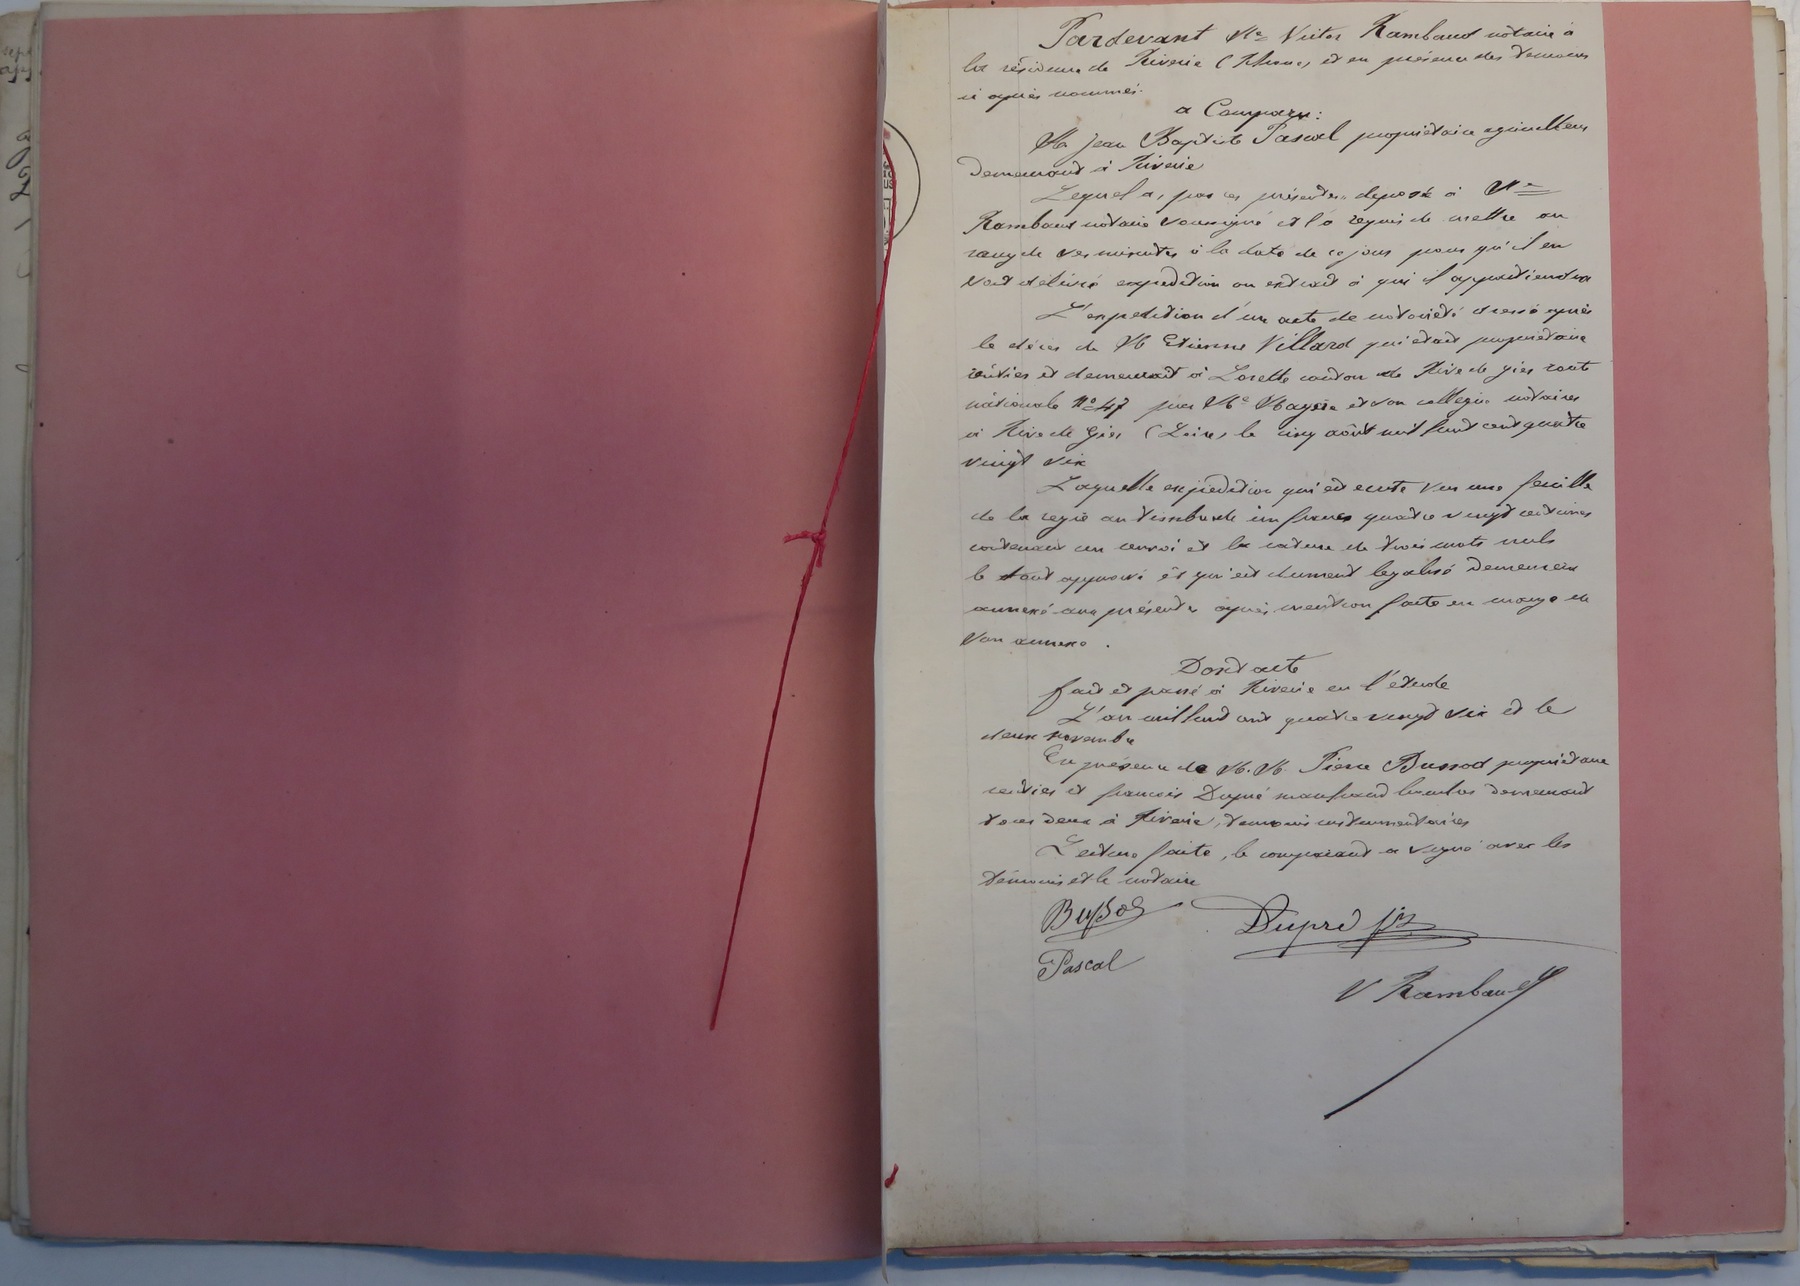 Pardevant Me Victor Rambaud notaire à
la résidence de Riverie (Rhone) et en présence des témoins
ci après nommés.
a Comparu:
M Jean Baptiste Pascal propriétaire agriculteur
demeurant à Riverie
Lequel a, par ces présentes déposé à Me
Rambaud notaire soussigné et l'a requis de mettre au
rang de ses minutes à la date de ce jour pour qu'il en
soit délivré expédition ou extrait à qui il appartiendra
L'expédition d'un acte de notoriété dressé après
le décès de M Etienne Villard qui était propriétaire
rentier et demeurait à Lorette canton de Rive de gier route
nationale No 47 par Me et son collègue notaires
à Rive de Gier (Loire) le cinq août mil huit cent quatre
vingt six
Laquelle expédition qui est ecrite sur une feuille
de la regie au timbre de un franc quatre vingt centimes
contenant un renvoi et la rature de trois mots nuls
le tout approuvé et qui est dument legalisé demeurera
annexé aux présentes après mention faite en marge de
son annexe.
Dont acte
fait et passé à Riverie en l'étude
L'an mil huit cent quatre vingt six et le
deux novembre
En présence de M.M. Pierre Bussod propriétaire
rentier et francois Dupré marchand demeurant
tous deux à Riverie, témoins instrumentaires
Lecture faite, le comparant a signé avec les
témoins et le notaire
Bussod Dupré
Pascal
V Rambaud